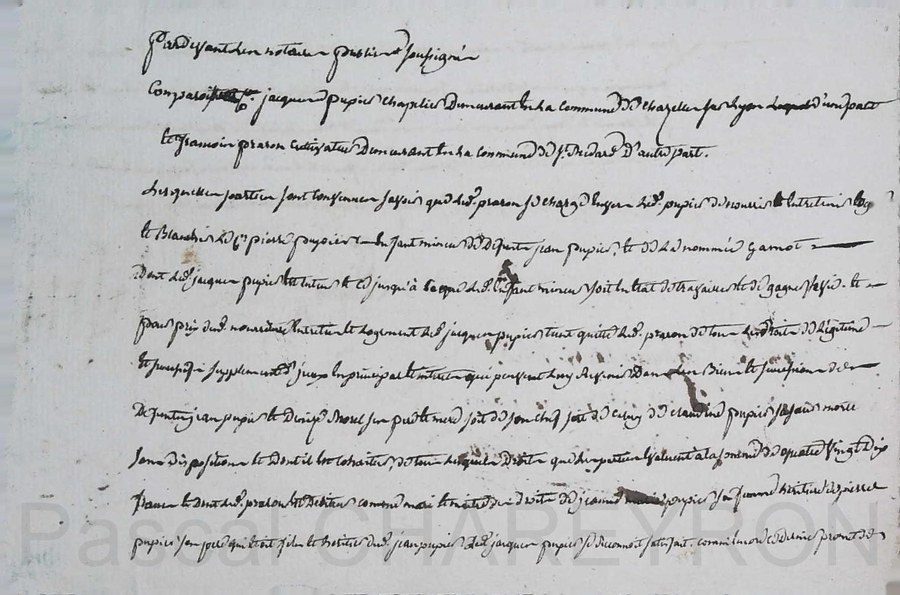 Pardevant les notaires publics soussignés
Comparoit jacques pupier chapelier demeurant en la commune de chazelles sur lyon d'une part
et françois praron cultivateur demeurant en la commune de st. medard d'autre part.
Lesquelles parties sont convenues savoir que led. praron se charge envers led. pupier de nourrir et entretenir log
et blanchir le Cn pierre pupier enfant mineur de defunt jean pupier, et de la nommée garnot
Dont led. jacques pupier est tuteur et ce jusqu'à ce que led. enfant mineur soit en état de travailler et de gagner sa vie. et
pour prix desd. nourriture entretien et logement led. jacques pupier tient quitte led. praron de tous les droits de légitime
et supplement d'jceux en principal et interets qui peuvent luy revenir dans les biens et succession de
Defunt jean pupier et Denise morel ses pere et mere soit de son chef soit de celuy de claudine pupier sa soeur morte
sans disposition et dont il est cohéritier de tous lesquels droits que les parties évaluent a la somme de quatre vingt dix
francs et dont led. praron est debiteur comme mari et maitre des droits de jeanne pupier sa femme héritiere de pierre
pupier son pere qui étoit fils et héritier dud. jean pupier led. jacques pupier se reconnoit satisfait. comme
Pascal CHAREYRON